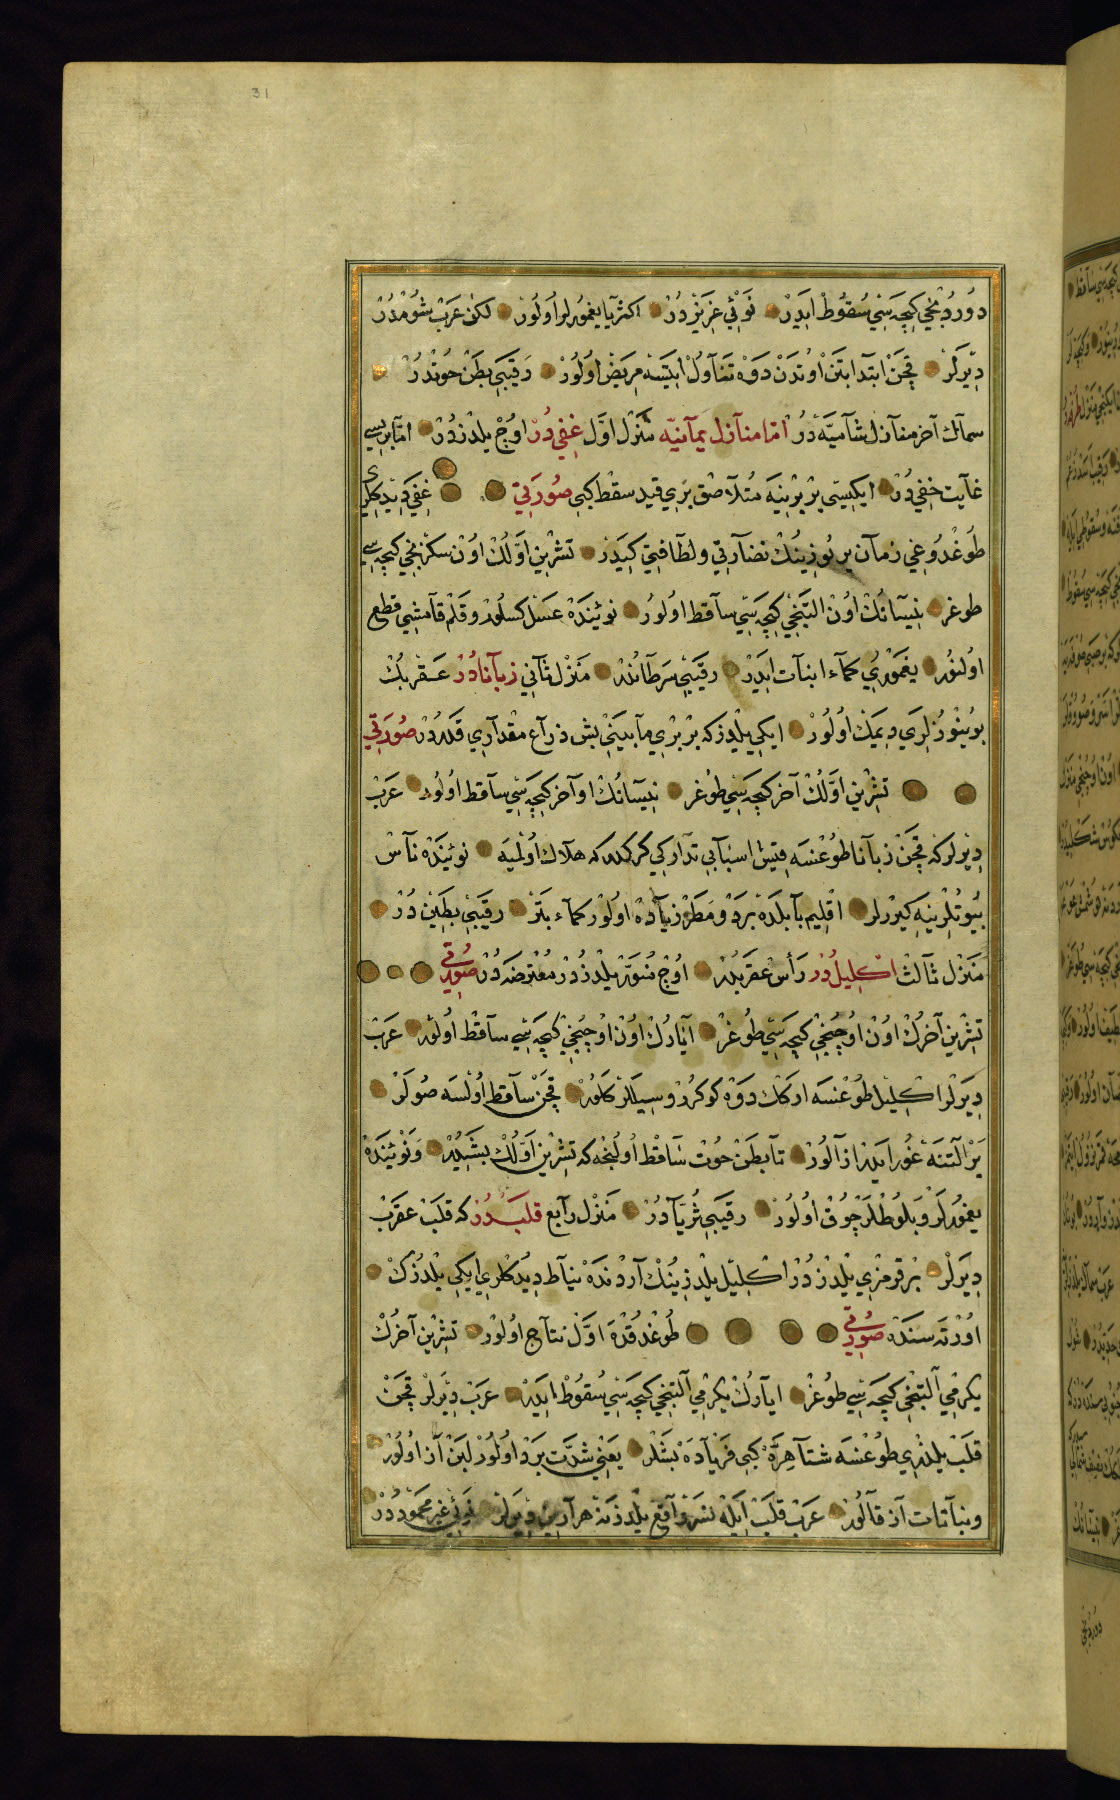 31
دوردنجی كیجه سی سقوط ایدر نوئی غزیزدر اكثریا یغمورلر اولور لكن عرب شومدر
دیرلر قچن ابتدا بتن اوتدن دوه تناول ایتسه مریض اولور رقیبی بطن حوتدر
سماك آخر منازل شامیه در اما منازل یمانیه منزل اول غفردر اوچ یلدزدر اما بریسی
غایت خفی در ایكیسی بر برینه متلاصق بری قید سقط كبی صورتی غفر دیدكلری
طوغدوغی زمان یر یوزینك نضارتی ولطافتی كیدر تشرین اولك اون سكزنجی كیجه سی
طوغر نیسانك اون التنجی كیجه سی ساقط اولور نوئنده عسل كسلور وقلم قامشی قطع
اولنور یغموری كمآء انبات ایدر رقیبی سرطاندر منزل ثانی زبانادر عقربك
بوینوزلری دیمك اولور ایكی یلدیز كه بر بری مابینی بش ذراع مقداری قدر در صورتی
تشرین اولك آخر كیجه سی طوغر نیسانك او آخر كیجه سی ساقط اولور عرب
دیرلر كه قچن زبانا طوغنسه قیش اسبابی تداركی كركدر كه هلاك اولمیه نوئنده ناس
بیوتلرینه كیررلر اقلیم بابلده برد و مطر زیاده اولور كمآء بتر رقیبی بطین در
منزل ثالث اكلیلدر رأس عقربدر اوچ منور یلدزدر معترضه در صورتی
تشرین آخرك اون اوچنجی كیجه سی طوغر ایارك اون اوچنجی كیجه سی ساقط اولور عرب
دیرلر اكلیل طوغنسه اركك دوه كوكرر وسیللر كلور قچن ساقط اولسه صولر
یر التنه غور ایدر ازالور تا بطن حوت ساقط اولنجه كه تشرین اولك بشیدر و نوئنده
یغمورلر و بلوطلر چوق اولور رقیبی ثریادر منزل رابع قلبدر كه قلب عقرب
دیرلر بر قرمزی یلدزدر اكلیل یلدزینك آردنده نیاط دیدكلری ایكی یلدزك
اورته سنده صورتی طوغدقده اول نتاج اولور تشرین آخرك
یكرمی آلتنجی كیجه سی طوغر ایارك یكرمی آلتنجی كیجه سی سقوط ایدر عرب دیرلر قچن
قلب یلدزی طوغنسه شتا هره كبی فریاده بشلر یعنی شدت برد اولور لبن از اولور
ونباتات از قالور عرب قلب ایله نسر واقع یلدزینه هرارین دیرلر نوئی غیر محموددر